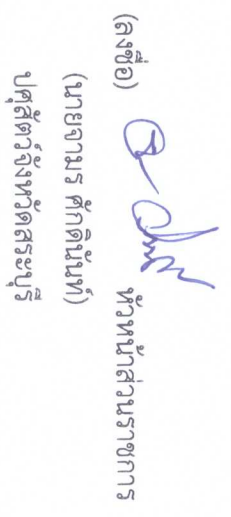 (ลงชื่อ) หัวหน้าส่วนราชการ
(นายจามร ศักดินันท์)
ปศุสัตว์จังหวัดสระบุรี